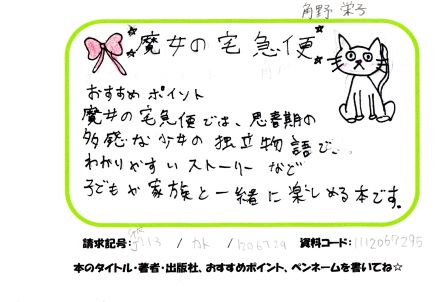 角野 栄子
魔女の宅急便
おすすめポイント
魔女の宅急便では、思春期の
多感な少女の独立物語で、、
わかりやすいストーリーなど
子どもや家族と一緒に楽しめる本です。
請求記号: J113 / カド / 1206729 資料コード: 1112067295
本のタイトル・著者・出版社、おすすめポイント、ペンネームを書いてね☆